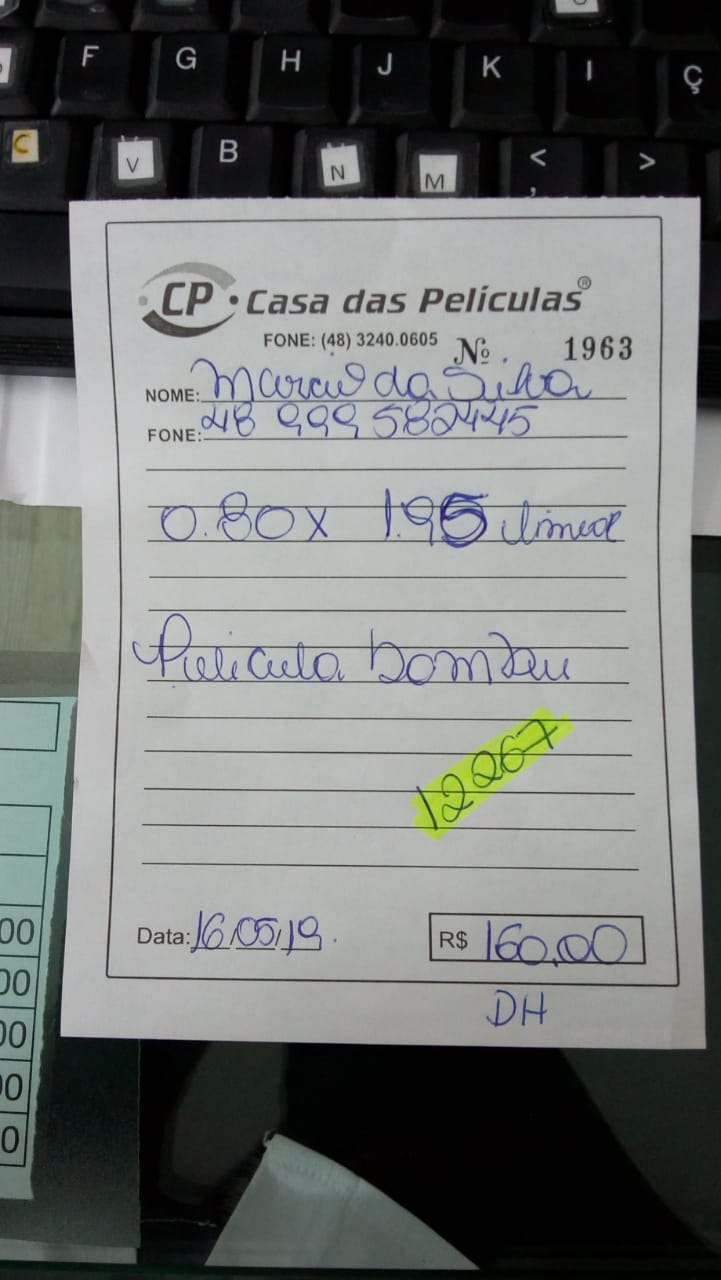 F G H J K Ç
C V B N M < , >
CP Casa das Películas®
FONE: (48) 3240.0605 Nº 1963
NOME: da Silva
FONE: 48 999582445
0.80 x 1.95
Pelicula
12267
Data: 16/05/19. R$ 160,00
DH
00
00
00
00
0